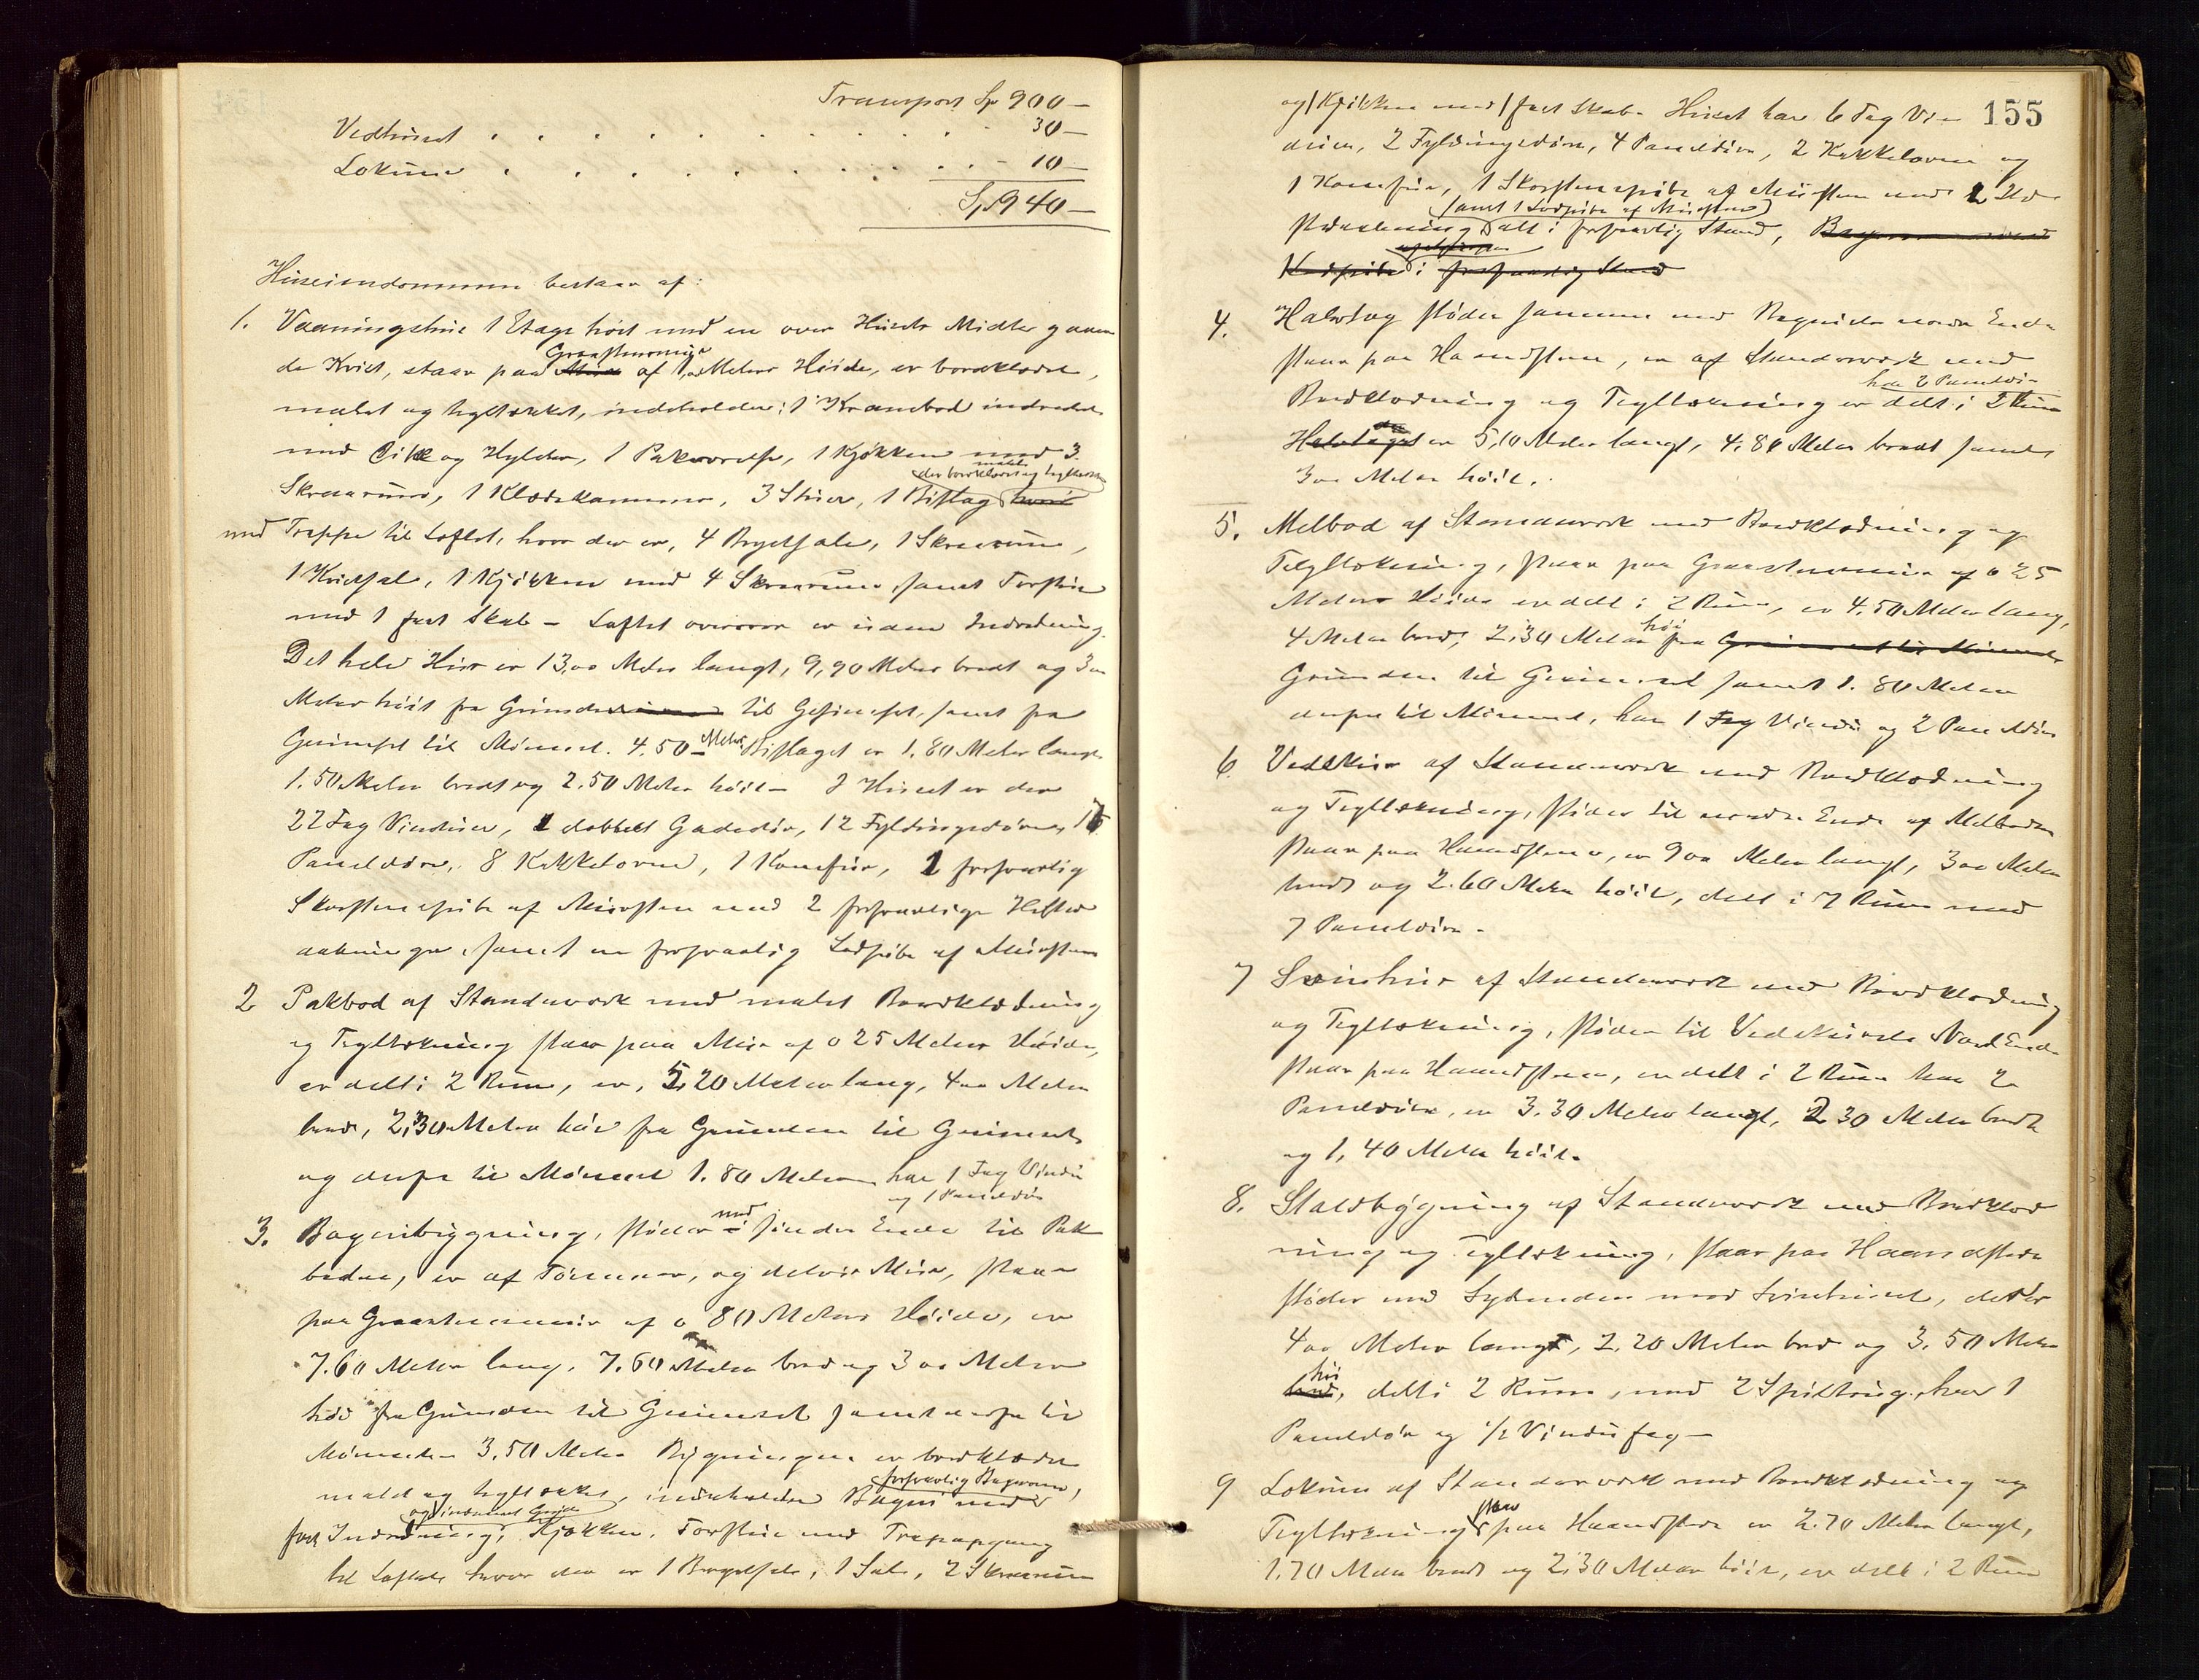 Transport Sp 900 -
Vedhuset . . . . . . . . . . . 30 -
Lokum . . . . . . . . . . . 10 -
Sp 940 -
Huseiendommen bestaar af:
1. Vaaningshus 1 Etage høit med en over Husets Midte gaaen
de Kvist, staar paa Graastensmur af Meters Høide, er bordklædt,
malet og tegltækket, indeholder: 1 Krambod indredet
med Disk og Hylder, 1 Pakværelse, 1 Kjøkken med 3
der bordklædt malet og tegltækket
Skraarum, 1 Klædekammer, 3 Stuer, 1 Bislag
med Treppe til Loftet, hvor der er, 4 Brystsale, 1 Skraarum,
1 Kvistsal, 1 Kjøkken med 4 Skraarum samt Forstue
med 1 fast Skab - Loftet ovenover er uden Indredning.
Det hele Hus er 13,00 Meter langt, 9,90 Meter bredt og 3 00
Meter høit fra Grunden til Gesimset, samt fra
Gesimset til Mønnet. 4.50 Meter Bislaget er 1.80 Meter langt
1.50 Meter bredt og 2.50 Meter høit - I Huset er der
22 Fag Vinduer, 1 dobbelt Gadedør, 12 Fyldingsdøre, 15
Paneldøre, 8 Kakkelovne, 1 Komfur, 1 forsvarlig
Skorstenspibe af Mursten med 2 forsvarlige Ildsted
aabninger samt en forsvarlig Lodpibe af Mursten
2 Pakbod af Standerværk med malet Bordklædning
og Tegltækning staar paa Mur af 0 25 Meters Høide,
er delt i 2 Rum, er, 5,20 Meter lang, 4 00 Meter
bred, 2,30 Meter høi fra Grunden til Gesimset
og derfra til Mønnet 1.80 Meter har 1 Fag Vindu
og 1 Paneldør
3. Bageribygning, støder med søndre Ende til Pak
boden, er af Tømmer, og delvis Mur, staar
paa Graastensmur af 0 80 Meters Høide, er
7.60 Meter lang, 7.60 Meter bred og 3 00 Meter
høi fra Grunden til Gesimset samt derfra til
Mønnet 3.50 Meter Bygningen er bordklædt
malet og tegltækket, indeholder Bageri med forsvarlig Bagerovn,
fast Indredning, Kjøkken, Forstue med Trapapgang
til Loftet hvor der er 1 Brystsal, 1 Sal, 2 Skraarum
155
og Kjøkken med fast Skab. Huset har 6 Fag Vin
duer, 2 Fyldingsdøre, 4 Paneldøre, 2 Kakkelovne og
1 Komfur, 1 Skorstenspibe af Mursten med 2 Ild
samt 1 Lodpibe af Mursten
alt i forsvarlig Stand,
i forsvarlig Stand
4. Halvtag støder sammen med Bageriets nordre Ende
staar paa Haandstene, er af Standerværk med
har 2 Paneldøre
Bordklædning og Tegltækning er delt i 2 Rum
Halvtaget er 5,10 Meter langt, 4.80 Meter bredt samt
3 00 Meter høit.
5. Melbod af Standerværk med Bordklædning og
Tegltækning, staar paa Graastensmur af 0 25
Meters Høide er delt i 2 Rum, er 4.50 Meter lang,
4 Meter bred, 2,30 Meter høi fra
Grunden til Gesimset samt 1.80 Meter
derfra til Mønnet, har 1 Fag Vindu og 2 Paneldøre
6. Vedskur af Standerværk med Bordklædning
og Tegltækning, støder til nordre Ende af Melboden
staar paa Haandstene, er 9 00 Meter langt, 3 00 Meter
bredt og 2.60 Meter høit, delt i 7 Rum med
7 Paneldøre -
7 Svinehus af Standerværk med Bordklædning
og Tegltækning, støder til Vedskurets Nord Ende
staar paa Haandstene, er delt i 2 Rum har 2
Paneldøre, er 3.30 Meter langt, 2 30 Meter bredt
og 1,40 Meter høit.
8. Staldbygning af Standerværk med Bordklæd
ning og Tegltækning, staar paa Haandstene
støder med Sydenden mod Svinehuset, det er
4 00 Meter langt, 2.20 Meter bred og 3.50 Meter
høi, delt i 2 Rum, med 2 Spiltoug, har 1
Paneldør og 1/2 Vindufag -
9 Lokum af Standerværk med Bordklædning og
Tegltækning staar paa Haandstene er 2.70 Meter langt,
1.70 Meter bredt og 2,30 Meter høit, er delt i 2 Rum